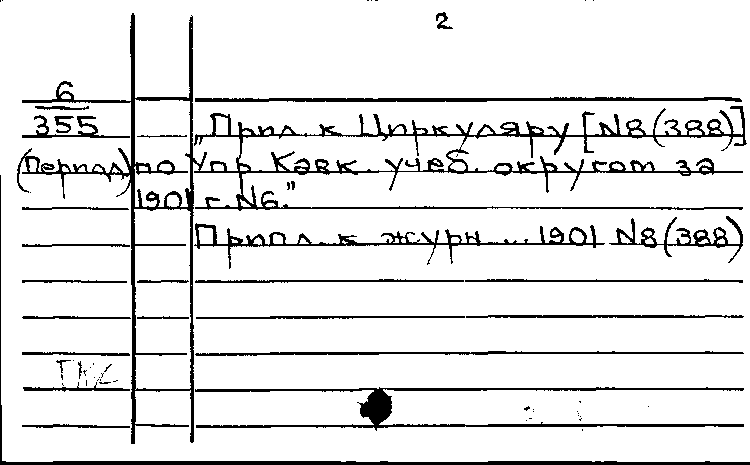 2
6
355 „Прил. к Циркуляру [N8(388)]
(Период) по Упр. Кавк. учеб. округом за
1901 г. N6."
Прилл. к журн ... 1901 N8(388)
ГКС